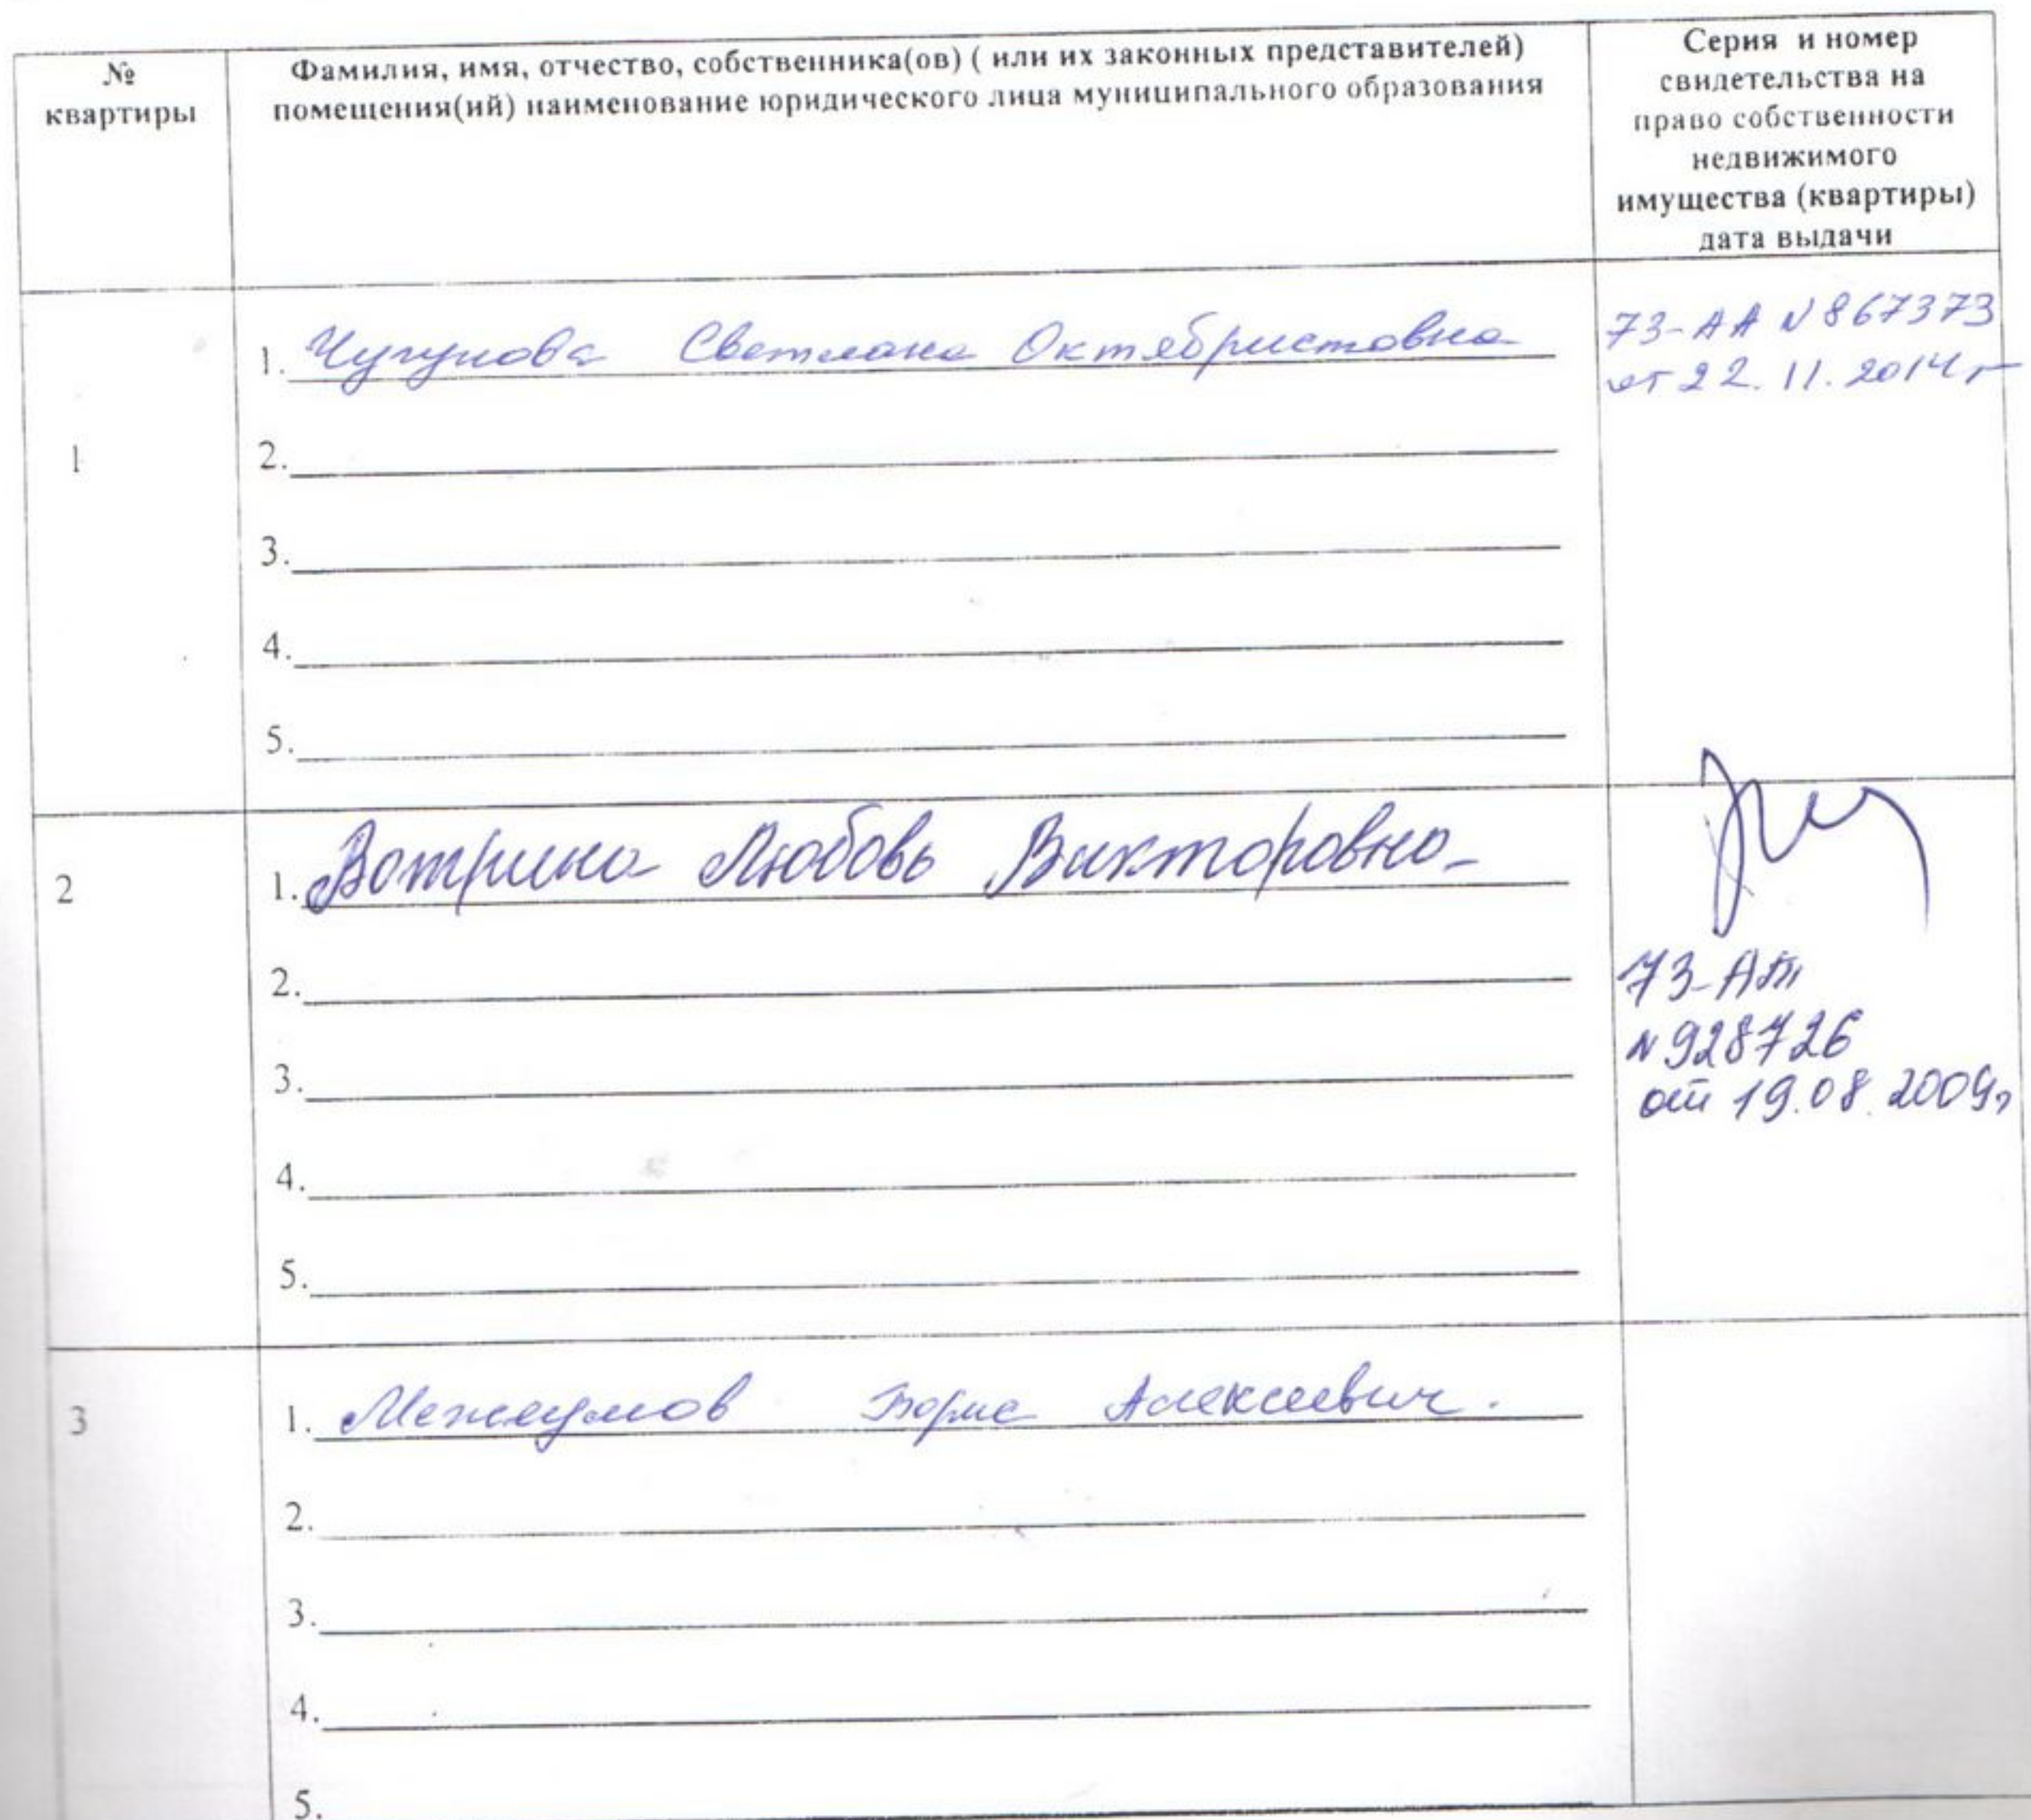 №
квартиры
Фамилия, имя, отчество, собственника(ов) ( или их законных представителей)
помещения(ий) наименование юридического лица муниципального образования
Серия и номер
свидетельства на
право собственности
недвижимого
имущества (квартиры)
дата выдачи
1
1. Чугунова Светлана Октябристовна
73-АА N867373
от 22.11.2014г
2.
3.
4.
5.
2
1. Вотрина Любовь Викторовна
73-АТ
N928726
от 19.08.2009г
2.
3.
4.
5.
3
1. Борис Алексеевич.
2.
3.
4.
5.